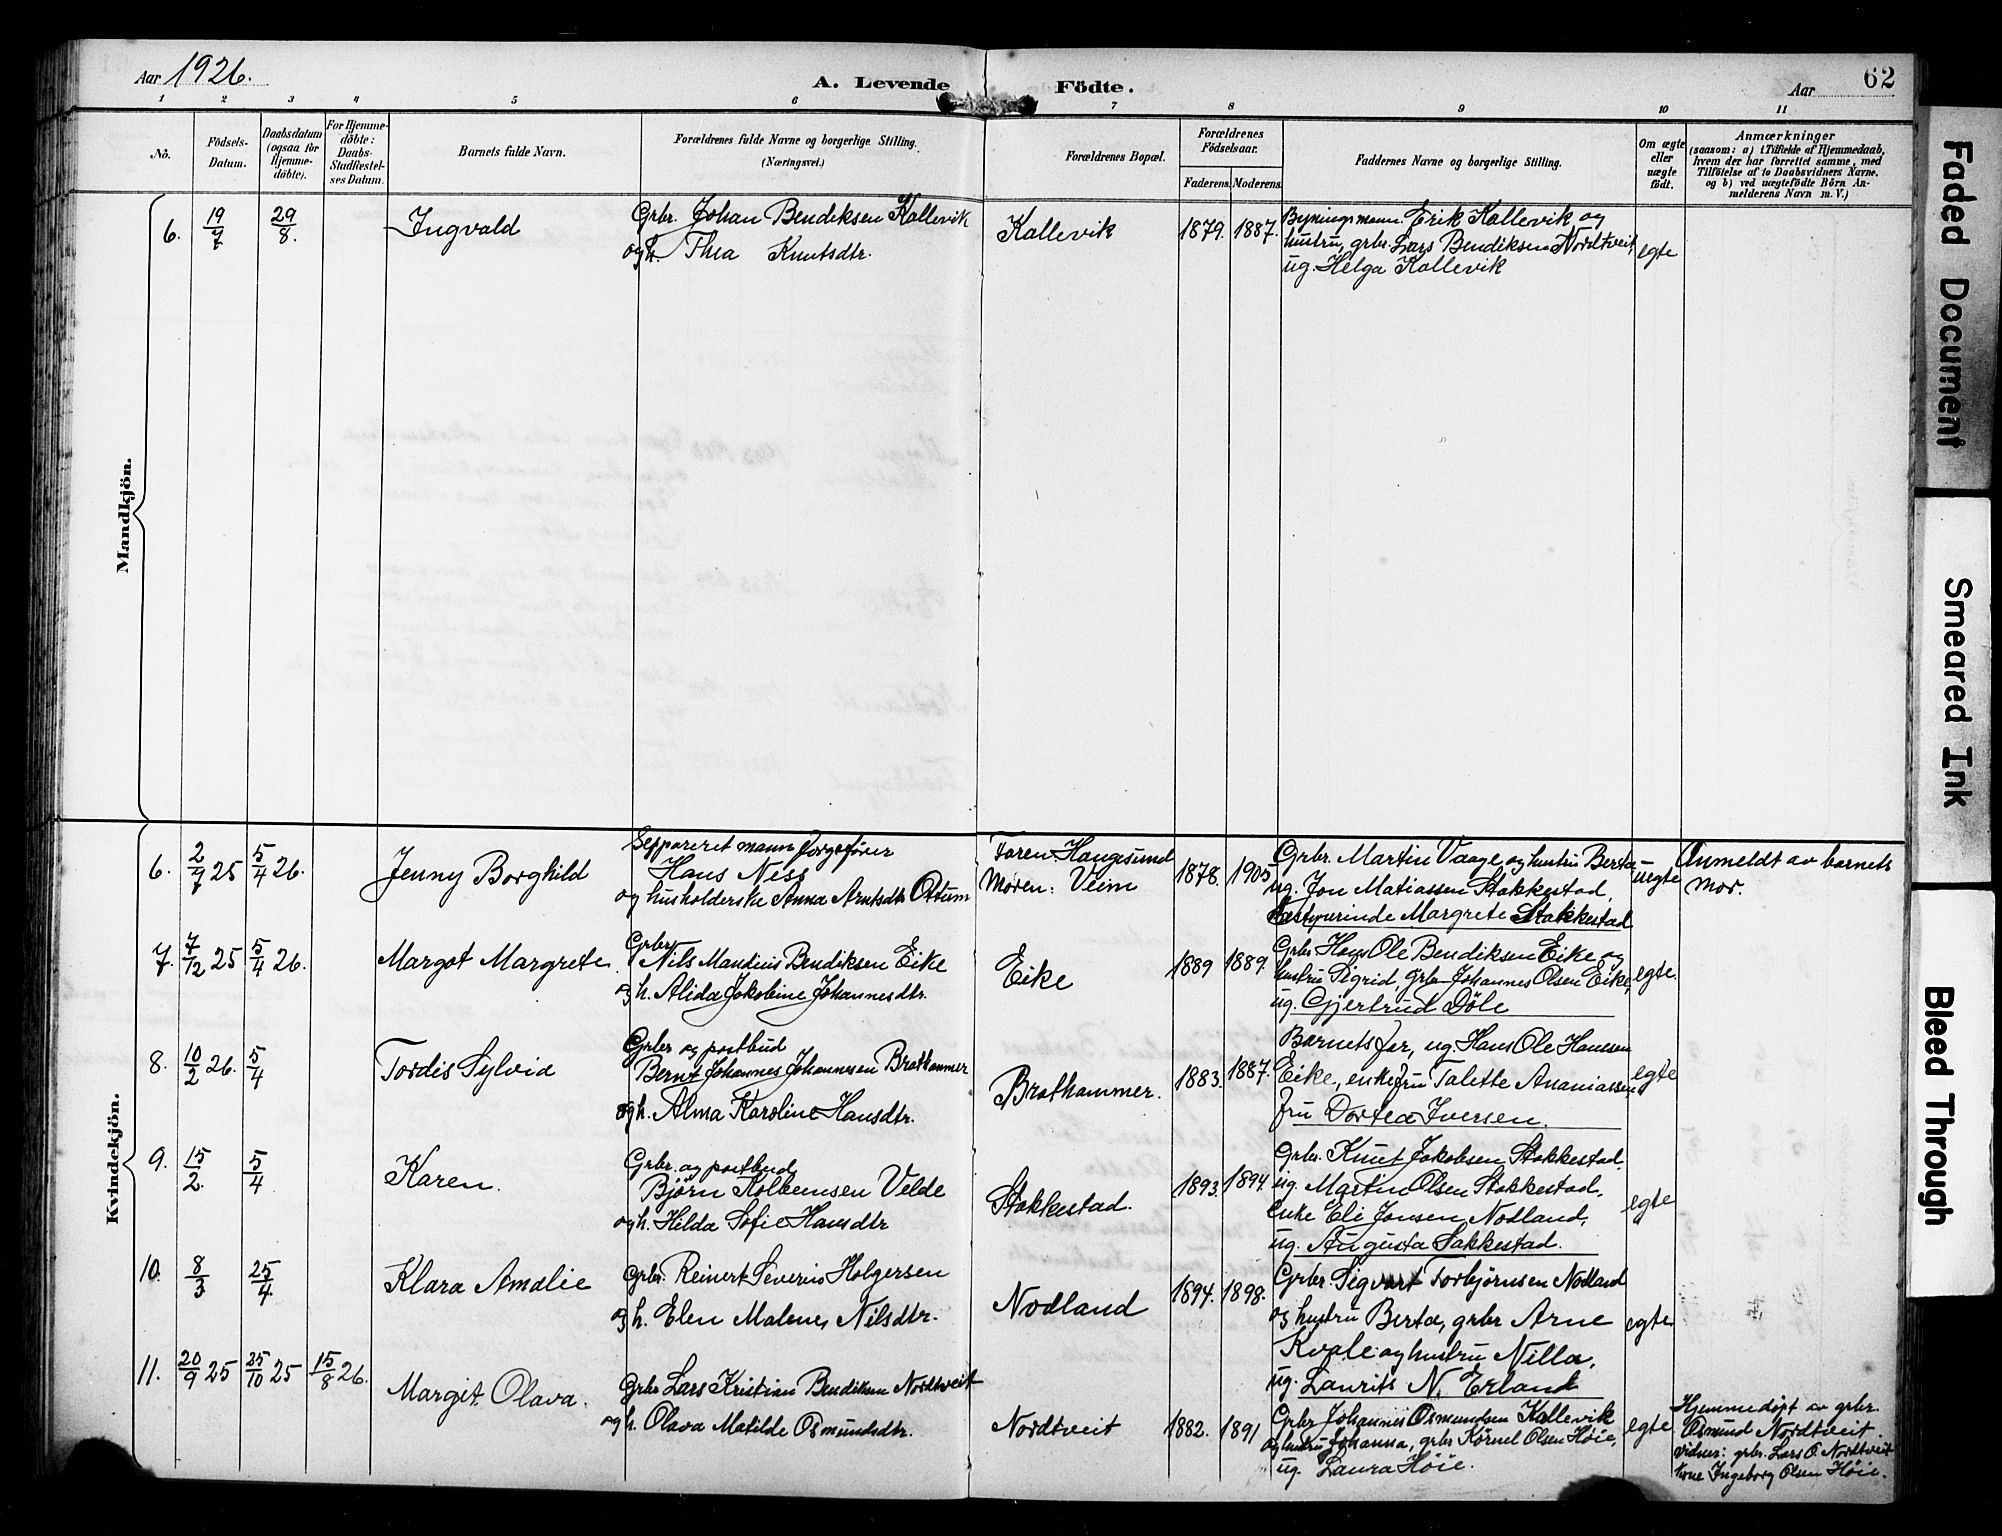 Aar 1926.
A. Levende Födte.
Aar
62
1 2 3 4 5 6 7 8 9 10 11
No.
Födsels-Datum.
Daabsdatum (ogsaa for Hjemme-döbte).
For Hjemme-döbte: Daabs-Stadfæstel-ses Datum.
Barnets fulde Navn.
Forældrenes fulde Navne og borgerlige Stilling. (Næringsvei.)
Forældrenes Bopæl.
Forældrenes Födselsaar.
Faderens. Moderens.
Faddernes Navne og borgerlige Stilling.
Om ægte eller uægte födt.
Anmærkninger
(saasom: a) i Tilfælde af Hjemmedaab,
hvem der har forrettet samme, med
Tilföielse af to Daabsvidners Navne,
og b) ved uægtefödte Börn An-
melderens Navn m. V.)
Mandkjön.
6. 19/7 29/8. Ingvald
Grbr. Johan Bendiksen Kallevik
og h. Thea Knutsdtr.
Kallevik 1879. 1887.
Bygningsmann Erik Kallevik og
hustru, grbr. Lars Bendiksen Nordtveit,
ug. Helga Kallevik
egte
Kvindekjön.
6. 2/7 25 5/4 26. Jenny Borghild
Seppareret mann forgefører
Hans Ness
og husholderske Anna Arntsdtr Ottum
Faren: Haugesund
Moren: Veim
1878. 1905
Grbr. Martin Vaage og hustru Berta
ug. Jon Matiassen Stakkestad,
bestyrerinde Margrete Stakkestad
uegte
Anmeldt av barnets
mor.
7. 7/12 25 5/4 26. Margot Margrete
Grbr
Nils Mandius Bendiksen Eike
og h. Alida Jakobine Johannesdtr.
Eike 1889 1889.
Grbr Hans Ole Bendiksen Eike og
hustru Sigrid, grbr Johannes Olsen Eike,
ug. Gjertrud Döle
egte
8. 10/2 26. 5/4 Tordis Sylvia
Grbr og postbud
Bernt Johannes Johannesen Brathammer
og h. Alma Karoline Hansdtr.
Brathammer. 1883. 1887.
Barnets far, ug. Hans Ole Hanssen
Eike, enkefru Talette Ananiassen
fru Dortea Iversen.
egte
9. 15/2 5/4 Karen.
Grbr. og postbud
Bjørn Kolbeinsen Velde
og h. Hilda Sofie Hansdtr
Stakkestad. 1893. 1894.
Grbr. Knut Jakobsen Stakkestad
ug. Martin Olsen Stakkestad,
enke Eli Jonsen Nodland,
ug. Augusta Sakkestad.
egte
10. 8/3 25/4. Klara Amalie
Grbr. Reinert Severin Holgersen
og h. Elen Malene Nilsdtr.
Nodland 1894. 1898.
Grbr. Sigvart Torbjørnsen Nodland
og hustru Berta, grbr Arne
Kvale og hustru Nilla,
ug. Laurits N. Erland
egte
11. 20/9 25 25/10 25 15/8 26. Margit Olava.
Grbr Lars Kristian Bendiksen Nordtveit
og h. Olava Matilde Osmundsdtr.
Nordtveit 1882. 1891
Grbr Johannes Osmundsen Kallevik
og hustru Johanna, grbr Körnel Olsen Høie,
ug. Laura Høie.
egte
Hjemmedøpt av grbr.
Osmund Nordtveit.
Vidner: grbr. Lars O Nordtveit
Kone Ingeborg Olsen Høie.
Faded Document
Smeared Ink
Bleed Through